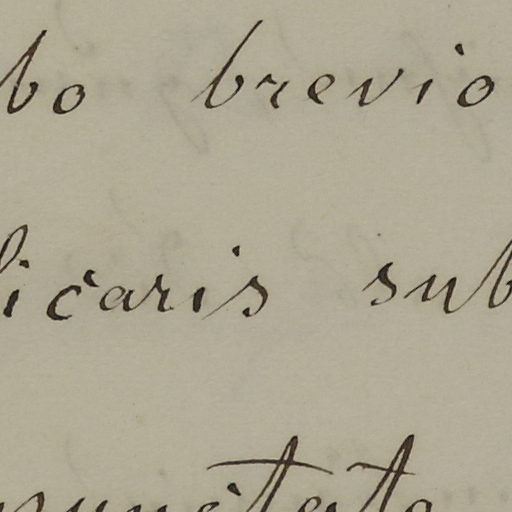 bo brevio
licaris sub
punctata